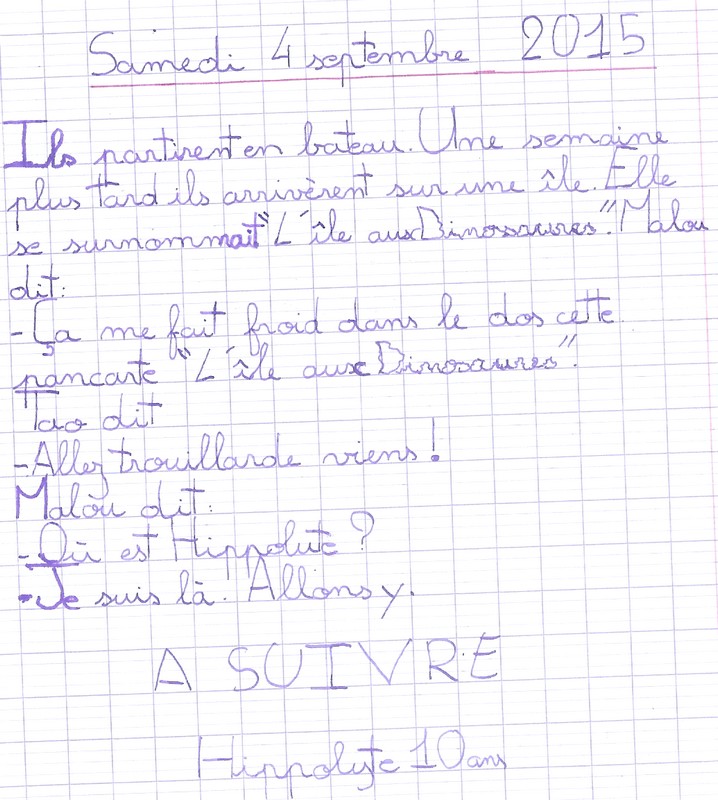 Samedi 4 septembre 2015
Ils partirent en bateau. Une semaine
plus tard ils arrivèrent sur une île. Elle
se surnommait "L'île aux Dinosaures". Malou
dit:
-Ça me fait froid dans le dos cette
pancarte "L'île aux Dinosaures".
Tao dit
-Allez trouillarde viens!
Malou dit:
-Où est Hippolute?
-Je suis là. Allons y.
A SUIVRE
Hippolyte 10 ans